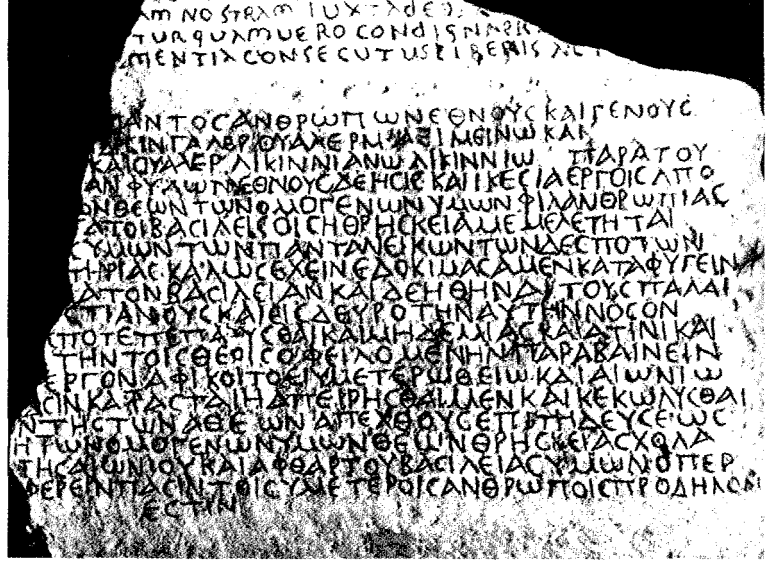 AM NOSTRAM IUXTA DEO
TUR QUAM UERO CONDIGNA PR
MENTIA CONSECUTUS LIBERIS AC

ΠΑΝΤΟϹ ΑΝΘΡΩΠΩΝ ΕΘΝΟΥϹ ΚΑΙ ΓΕΝΟΥϹ
ϹΙΝ ΓΑΛΕΡ ΟΥΑΛΕΡ ΜΑΞΙΜΕΙΝΩ ΚΑΙ
ΚΑΙ ΟΥΑΛΕΡ ΛΙΚΙΝΝΙΑΝΩ ΛΙΚΙΝΝΙΩ ΠΑΡΑ ΤΟΥ
ΑΝΦΥΛΩΝ ΕΘΝΟΥϹ ΔΕΗϹΙϹ ΚΑΙ ΙΚΕϹΙΑ ΕΡΓΟΙϹ ΑΠΟ
ΩΝ ΘΕΩΝ ΤΩΝ ΟΜΟΓΕΝΩΝ ΥΜΩΝ ΦΙΛΑΝΘΡΩΠΙΑϹ
ΑΤΟΙ ΒΑϹΙΛΕΙϹ ΟΙϹ Η ΘΡΗϹΚΕΙΑ ΜΕΜΕΛΕΤΗΤΑΙ
ΥΜΩΝ ΤΩΝ ΠΑΝΤΑ ΝΕΙΚΩΝΤΩΝ ΔΕϹΠΟΤΩΝ
ΤΗΡΙΑϹ ΚΑΛΩϹ ΕΧΕΙΝ ΕΔΟΚΙΜΑϹΑΜΕΝ ΚΑΤΑΦΥΓΕΙΝ
ΑΤΟΝ ΒΑϹΙΛΕΙΑΝ ΚΑΙ ΔΕΗΘΗΝΑΙ ΤΟΥϹ ΠΑΛΑΙ
ϹΤΙΑΝΟΥϹ ΚΑΙ ΕΙϹ ΔΕΥΡΟ ΤΗΝ ΑΥΤΗΝ ΝΟϹΟΝ
ΠΟΤΕ ΠΕΠΑΥϹΘΑΙ ΚΑΙ ΜΗΔΕΜΙΑ ϹΚΑΙΑ ΤΙΝΙ ΚΑΙ
ΤΗΝ ΤΟΙϹ ΘΕΟΙϹ ΟΦΕΙΛΟΜΕΝΗΝ ΠΑΡΑΒΑΙΝΕΙΝ
ΕΡΓΟΝ ΑΦΙΚΟΙΤΟ ΕΙ ΥΜΕΤΕΡΩ ΘΕΙΩ ΚΑΙ ΑΙΩΝΙΩ
ϹΙΝ ΚΑΤΑϹΤΑΙΗ ΑΠΕΙΡΗϹΘΑΙ ΜΕΝ ΚΑΙ ΚΕΚΩΛΥϹΘΑΙ
ΤΗϹ ΤΩΝ ΑΘΕΩΝ ΑΠΕΧΘΟΥϹ ΕΠΙΤΗΔΕΥϹΕΩϹ
Η ΤΩΝ ΟΜΟΓΕΝΩΝ ΥΜΩΝ ΘΕΩΝ ΘΡΗϹΚΕΙΑ ϹΧΟΛΑ
ΤΗϹ ΑΙΩΝΙΟΥ ΚΑΙ ΑΦΘΑΡΤΟΥ ΒΑϹΙΛΕΙΑϹ ΥΜΩΝ ΟΠΕΡ
ΦΕΡΕΙΝ ΠΑϹΙΝ ΤΟΙϹ ΥΜΕΤΕΡΟΙϹ ΑΝΘΡΩΠΟΙϹ ΠΡΟΔΗΛΟΝ
ΕϹΤΙΝ